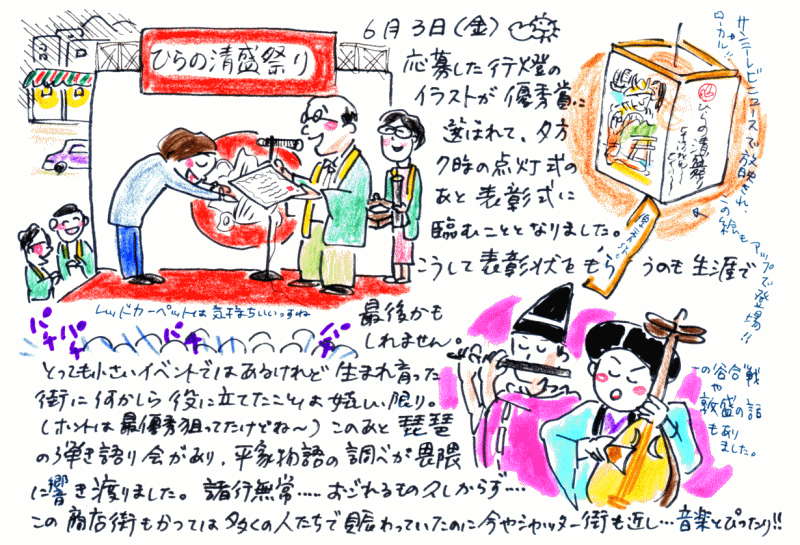 6月3日(金)
ひらの清盛祭り
応募した行燈の
イラストが優秀賞に
選ばれて、夕方
7時の点灯式の
あと表彰式に
臨むこととなりました。
こうして表彰状をもらうのも生涯で
最後かも
しれません。
サンテレビニュースで放映され、この絵もアップで登場!!
ローカル!!
ひらの清盛祭り
レッドカーペットは気持ちいいっすね
パチ
パチ
パチ
パチ
とっても小さいイベントではあるけれど生まれ育った
街に何かしら役に立てたことは嬉しい限り。
(ホントは最優秀狙ってたけどね〜)このあと琵琶
の弾き語り会があり、平家物語の調べが畏隈
に響き渡りました。諸行無常‥‥おごれるもの久しからず‥‥
この商店街もかつては多くの人たちで賑わっていたのに今やシャッター街も近し…音楽とぴったり!!
一の谷合戦
や
敦盛の話
もあり
ました。